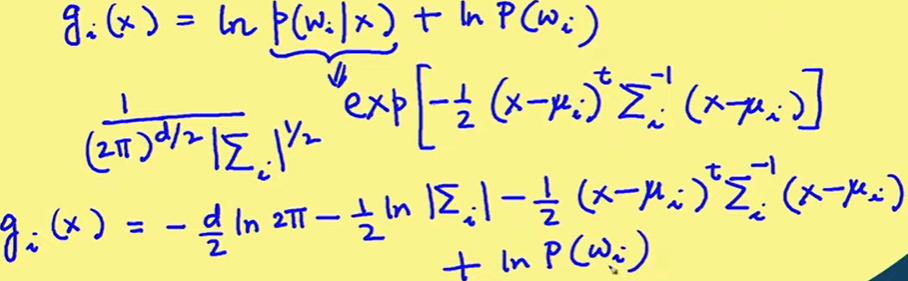 g_i(x) = ln p(w_i|x) + ln P(w_i)
⇓
1/((2π)^{d/2} |Σ_i|^{1/2}) exp[-1/2 (x-μ_i)^t Σ_i^{-1} (x-μ_i)]
g_i(x) = - d/2 ln 2π - 1/2 ln |Σ_i| - 1/2 (x-μ_i)^t Σ_i^{-1} (x-μ_i)
+ ln P(w_i)